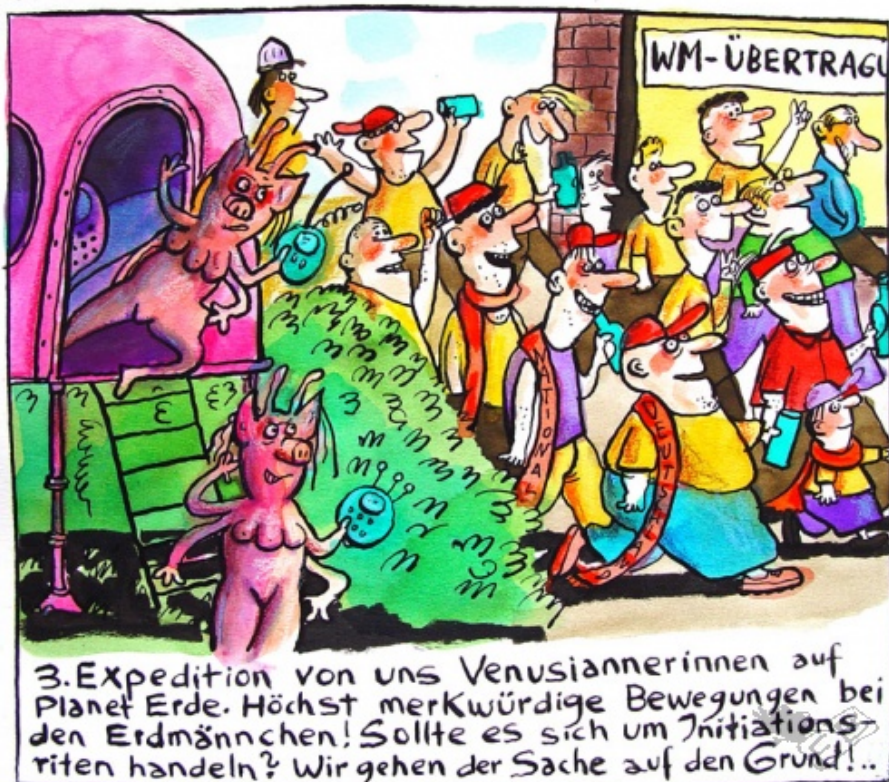 WM-ÜBERTRAGU
NATIONAL
DEUTSCHLAND
3. Expedition von uns Venusiannerinnen auf
Planet Erde. Höchst merkwürdige Bewegungen bei
den Erdmännchen! Sollte es sich um Initiations-
riten handeln? Wir gehen der Sache auf den Grund!..